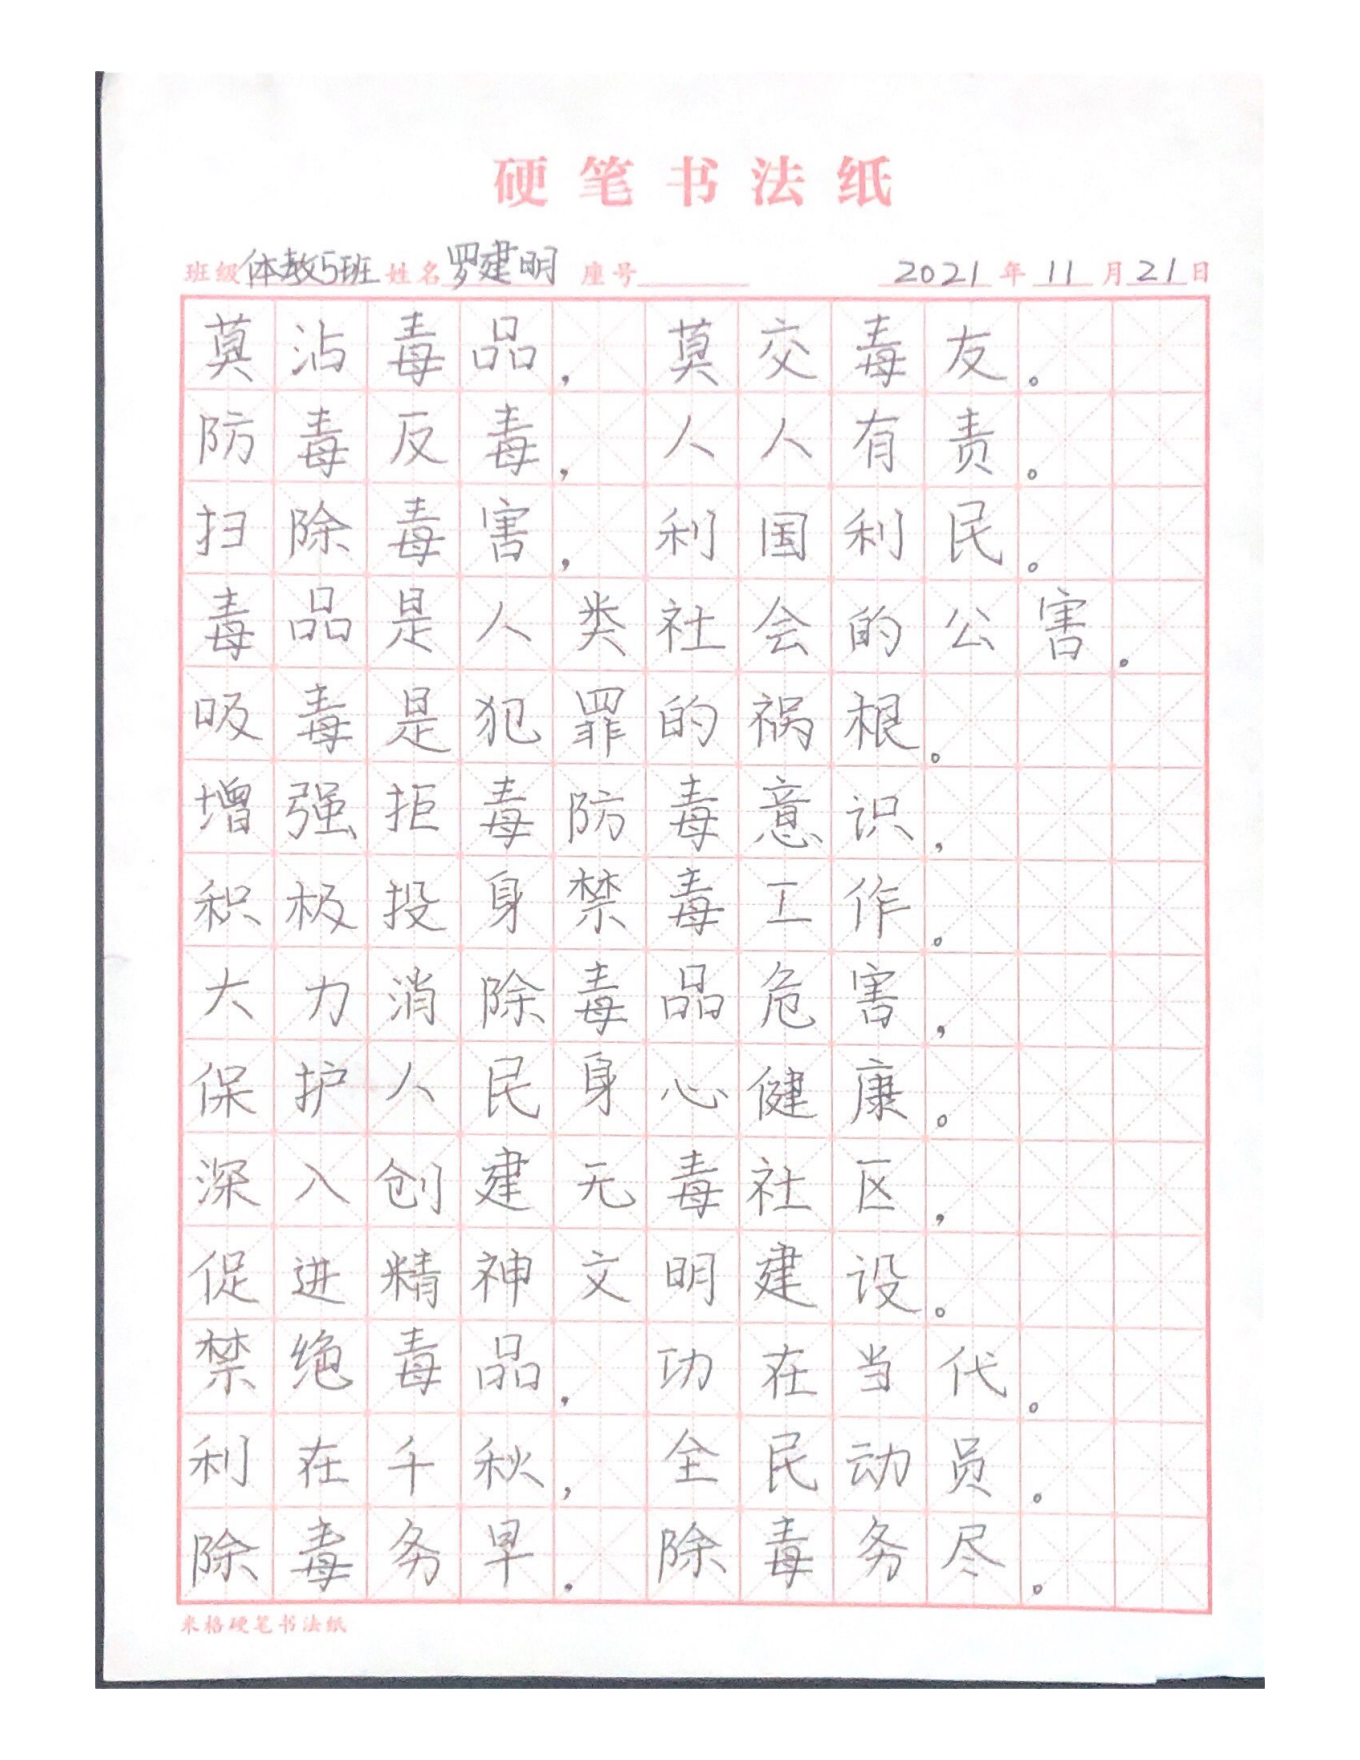 硬笔书法纸
班级 体教5班 姓名 罗建明 座号 2021 年 11 月 21 日
莫沾毒品，莫交毒友。
防毒反毒，人人有责。
扫除毒害，利国利民。
毒品是人类社会的公害。
吸毒是犯罪的祸根。
增强拒毒防毒意识，
积极投身禁毒工作。
大力消除毒品危害，
保护人民身心健康。
深入创建无毒社区，
促进精神文明建设。
禁绝毒品，功在当代。
利在千秋，全民动员。
除毒务早，除毒务尽。
米格硬笔书法纸